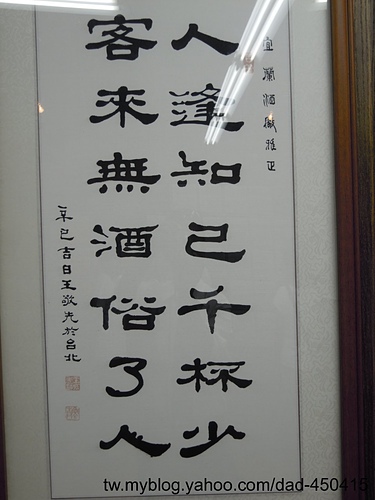 宜蘭酒廠雅正
人逢知己千杯少
客來無酒俗了人
辛巳吉日王敬先於台北
tw.myblog.yahoo.com/dad-450415